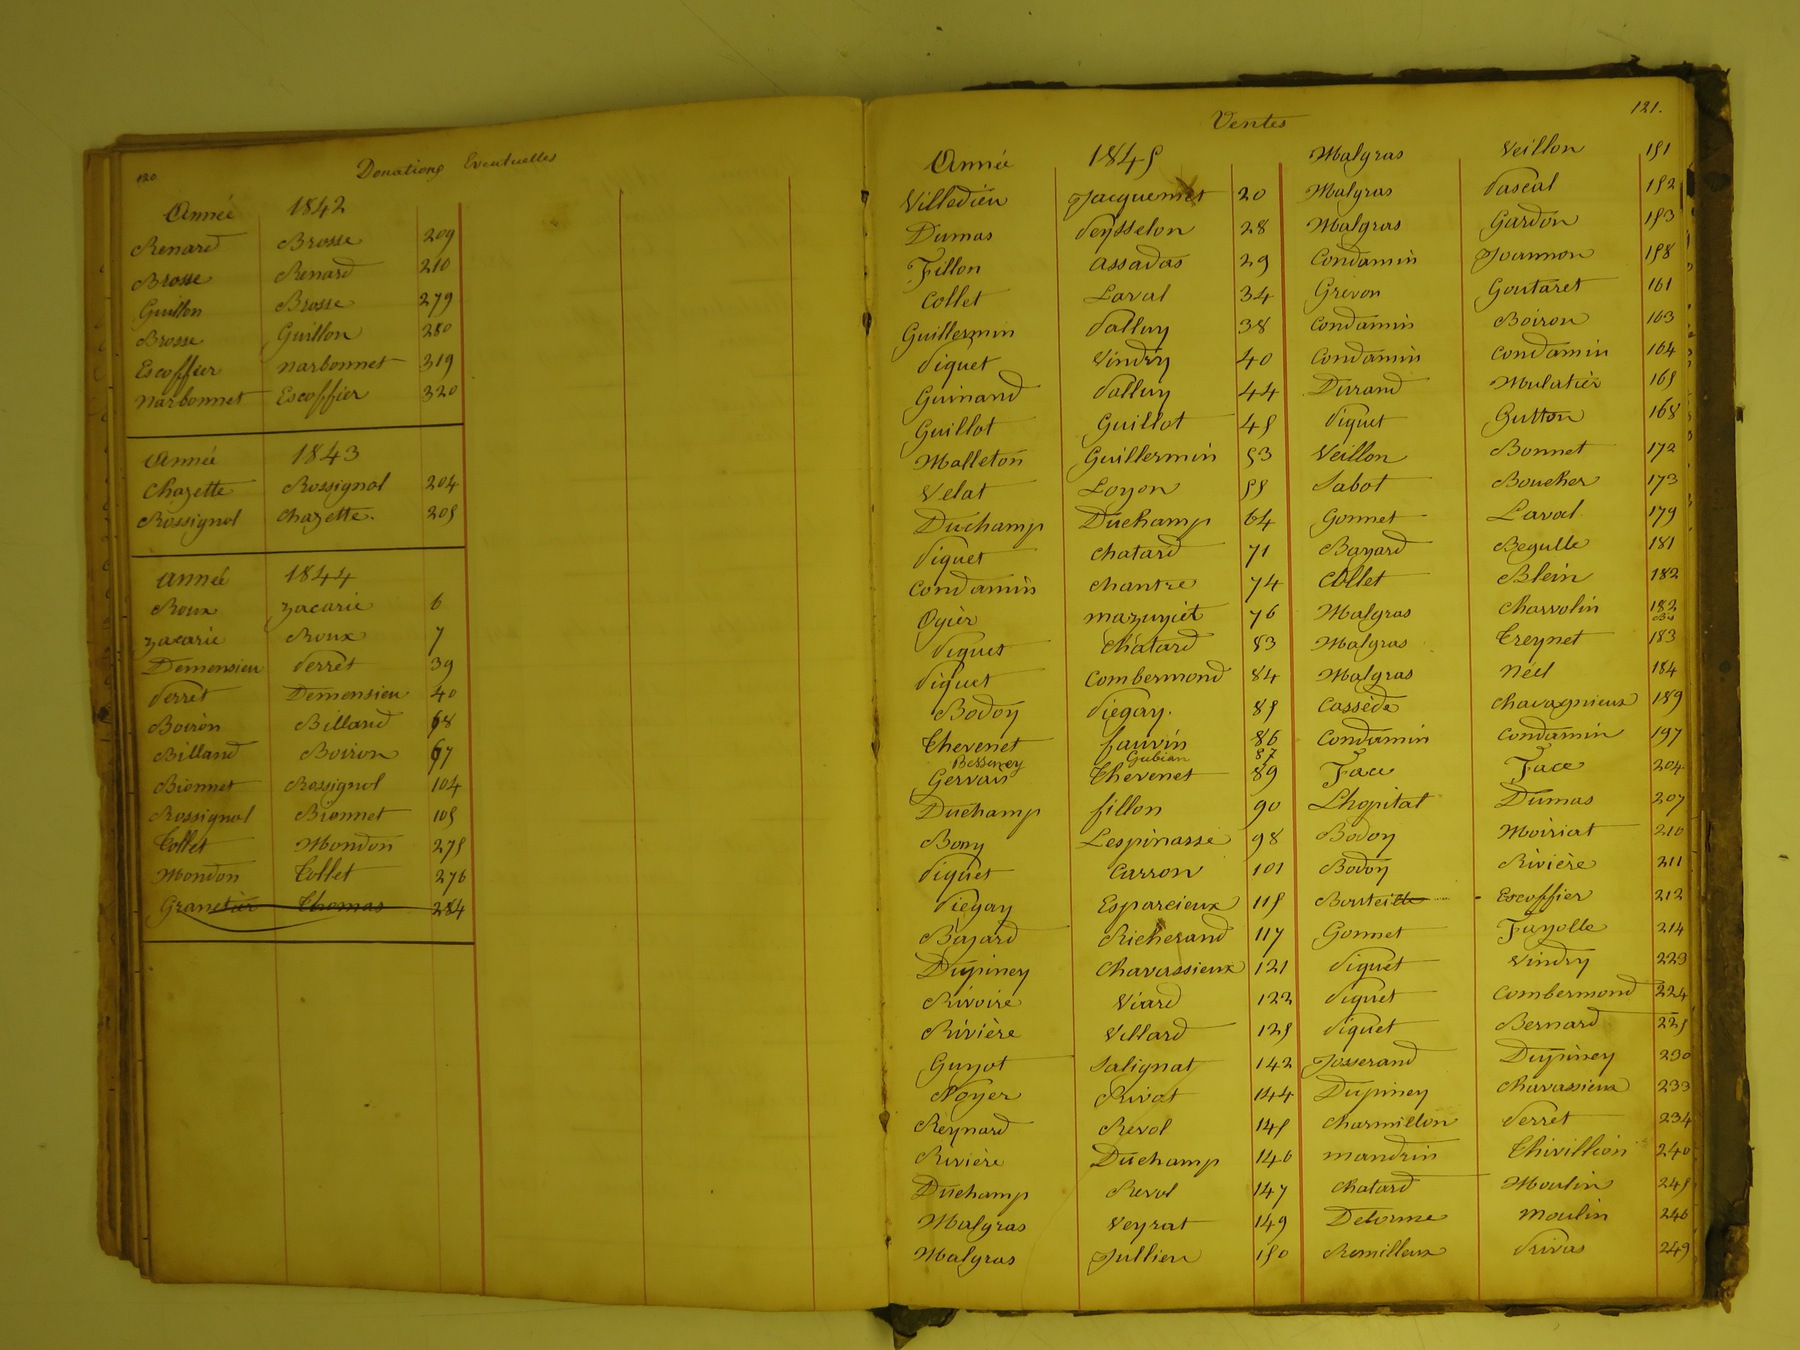 120
Donations Eventuelles
Année 1842
Renard Brosse 209
Brosse Renard 210
Guillon Brosse 279
Brosse Guillon 280
Escoffier narbonnet 319
narbonnet Escoffier 320
Année 1843
Chazette Rossignol 204
Rossignol Chazette. 205
année 1844
Roux zacarie 6
zacarie Roux 7
Demensieu Perret 39
Perret Demensieu 40
Boiron Billard 68
Billard Boiron 67
Bionnet Rossignol 104
Rossignol Bionnet 105
Collet Mondon 275
Mondon Collet 276
Granetier Thomas 284
121.
Ventes
Année 1845
Villedieu Jacquemet 20
Dumas Peysselon 28
Fillon Assadas 29
Collet Laval 34
Guillermin Palluy 38
Piquet Vindry 40
Guinand Palluy 44
Guillot Guillot 45
Malleton Guillermin 53
Velat Loyon 55
Duchamp Duchamp 64
Piquet Chatard 71
Condamin Chantre 74
Ogier mazuyiet 76
Piquet Chatard 83
Piquet Combermond 84
Bodoy Piegay. 85
Thevenet fauvin 86
Besseney Gubian 87
Gervais Thevenet 89
Duchamp fillon 90
Bony Lespinasse 98
Piquet Carron 101
Piegay Esparcieux 115
Bayard Richerand 117
Dupiney Chavassieux 121
Rivoire Viard 122
Rivière Villard 125
Guyot Salignat 142
Noyer Rivat 144
Reynard Revol 145
Rivière Duchamp 146
Duchamp Revol 147
Malgras Veyrat 149
Malgras Jullien 150
Malgras Veillon 151
Malgras Pascal 152
Malgras Gardon 153
Condamin Joannon 158
Grevon Goutaret 161
Condamin Boiron 163
Condamin Condamin 164
Durand Mulatier 165
Piquet Gutton 168
Veillon Bonnet 172
Sabot Boucher 173
Gonnet Laval 179
Bayard Begulle 181
Collet Blein 182
Malgras Charvolin 182 Bis
Malgras Treynet 183
Malgras Néel 184
Cassède Chavagnieux 189
Condamin Condamin 197
Face Face 204
Lhopital Dumas 207
Bodoy Moiriat 210
Bodoy Rivière 211
Bouteille Escoffier 212
Gonnet Fayolle 214
Piquet Vindry 223
Piquet Combermond 224
Piquet Bernard 225
Josserand Dupiney 230
Dupiney Chavassieux 233
Charmillon Perret 234
mandrin Thivillion 240
Chatard Moulin 245
Delorme Moulin 246
Remilleux Privas 249